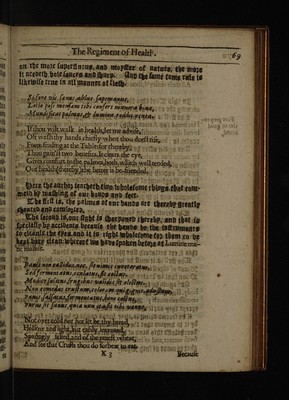 The Regiment of Health. 69
on the more superfluous, and moyster of nature, the more
it needeth hote sauces and sharp. And the same come rule is
likewise true in all manner of flesh.
Si fore vis sanus ablue sæpe manus,
Lotio post mensam tibi confert munera bina,
Mundificat palmas, et lumina reddit acuta.
If thou wilt walk in health, let me advise,
Oft wash thy hands, chiefly when thou dost rise,
From feeding at the Table: for thereby
Thou gain'st two benefits, it cleares the eye,
Gives comfort to the palmes, both which well tended,
Our health (thereby) the better is befriended.
Here the author teacheth two wholesome things that com-
meth by washing of our hands and feet.
The first is, the palmes of our hands are thereby greatly
and comforted.
The second is, our sight is sharpned thereby, and that is
specially by accidents because the hands be the instruments
to cleanse the eyes, and it is right wholesome for them to be
kept very clean: whereof we have spoken before at Lumina ma-
ne manus.
Panis non calidus, nec sit nimis inveteratus,
Sed fermentatus, oculatus, sit
Modice salitus, frugibus validis sit electus,
Non comedas crustam, choleram quia gignit adustam,
Panis salsatus, fermentatus, bene coctus,
Purus sit sanus, quia non ita sit tibi vanus,
Not over cold nor hot let be thy bread,
Hollow and light, but easily leavened,
Sparingly salted, and of the purest wheat,
And see that Crusts thou do forbear to eat.
K 3 Because